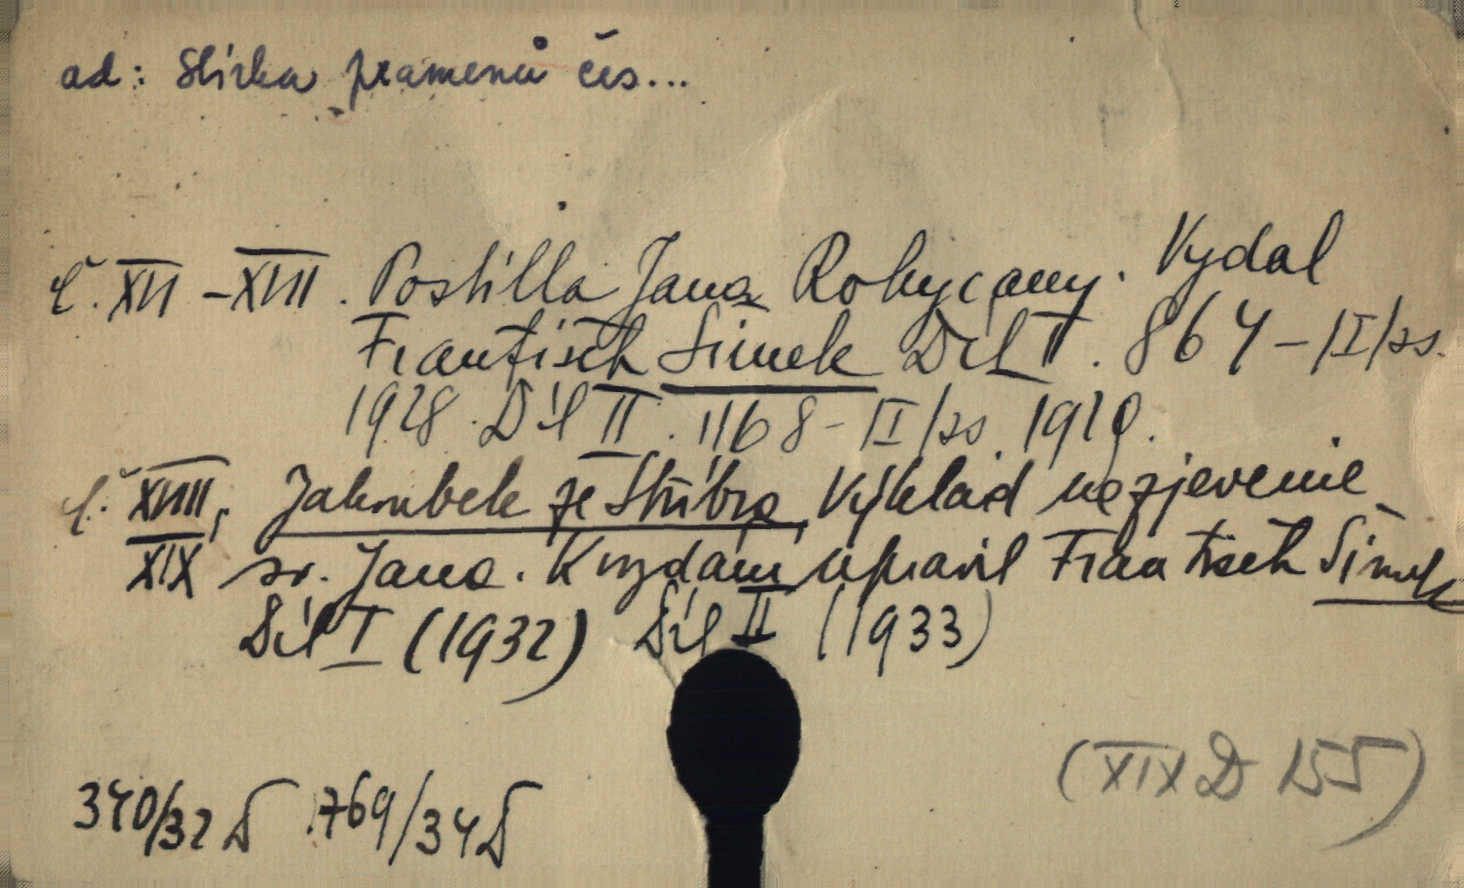 ad: Sbírka pramenů čes...
č. XVI - XVII. Postilla Jana Rokycany. Vydal
František Šimek Díl I. 864-II/ss.
1928. Díl II. 1168-II/ss 1929.
č. XVIII, Jakoubek ze Stříbra, Výklad na zjevenie
XIX sv. Jana. K vydání upravil František Šimek
Díl I (1932) Díl II (1933)
340/32 769/34
(XIX D 155)